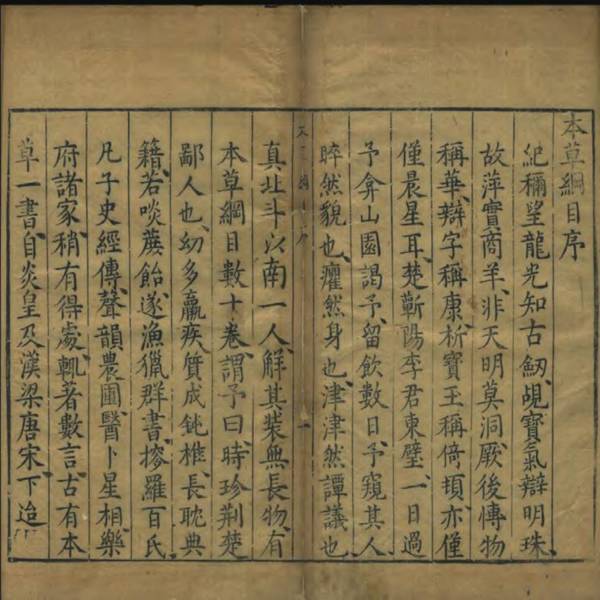 本草綱目序
紀稱望龍光知古劒覘寶氣辯明珠
故萍實商羊非天明莫洞厥後博物
稱華辯字稱康析寳玉稱倚頓亦僅
僅晨星耳楚蘄陽李君東璧一日過
予弇山園謁予留飲數日予窺其人
睟然貌也癯然身也津津然譚議也
真北斗以南一人觧其装無長物有
本草綱目數十卷謂予曰時珍荆楚
鄙人也幼多羸疾質成鈍椎長耽典
籍若啖蔗飴遂漁獵群書搜羅百氏
凡子史經傳聲韻農圃醫卜星相樂
府諸家稍有得處輒著數言古有本
草一書自炎皇及漢梁唐宋下迨